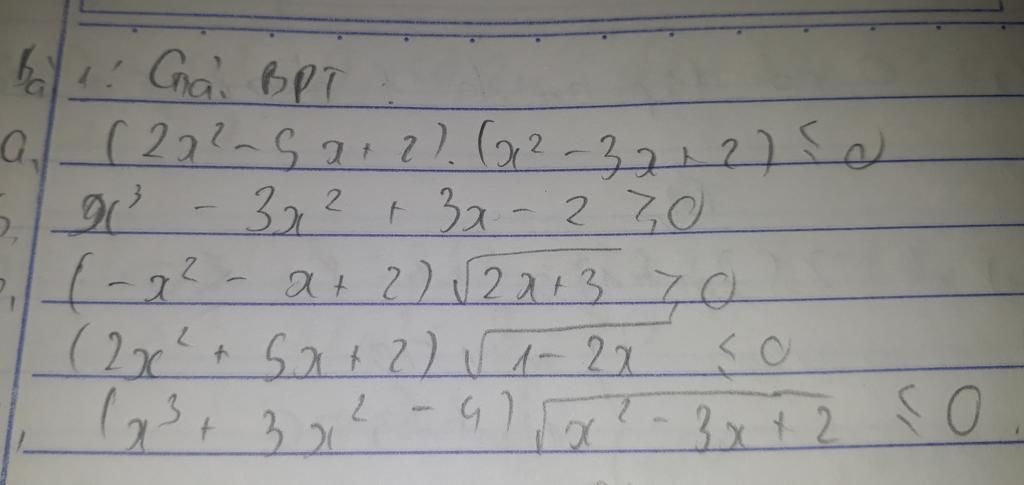 Bài 1: Giải BPT:
a, (2x² - 5x + 2).(x² - 3x + 2) ≤ 0
x³ - 3x² + 3x - 2 ≥ 0
(-x² - x + 2)√(2x+3) ≥ 0
(2x² + 5x + 2)√(1-2x) ≤ 0
(x³ + 3x² - 4)√(x² - 3x + 2) ≤ 0.